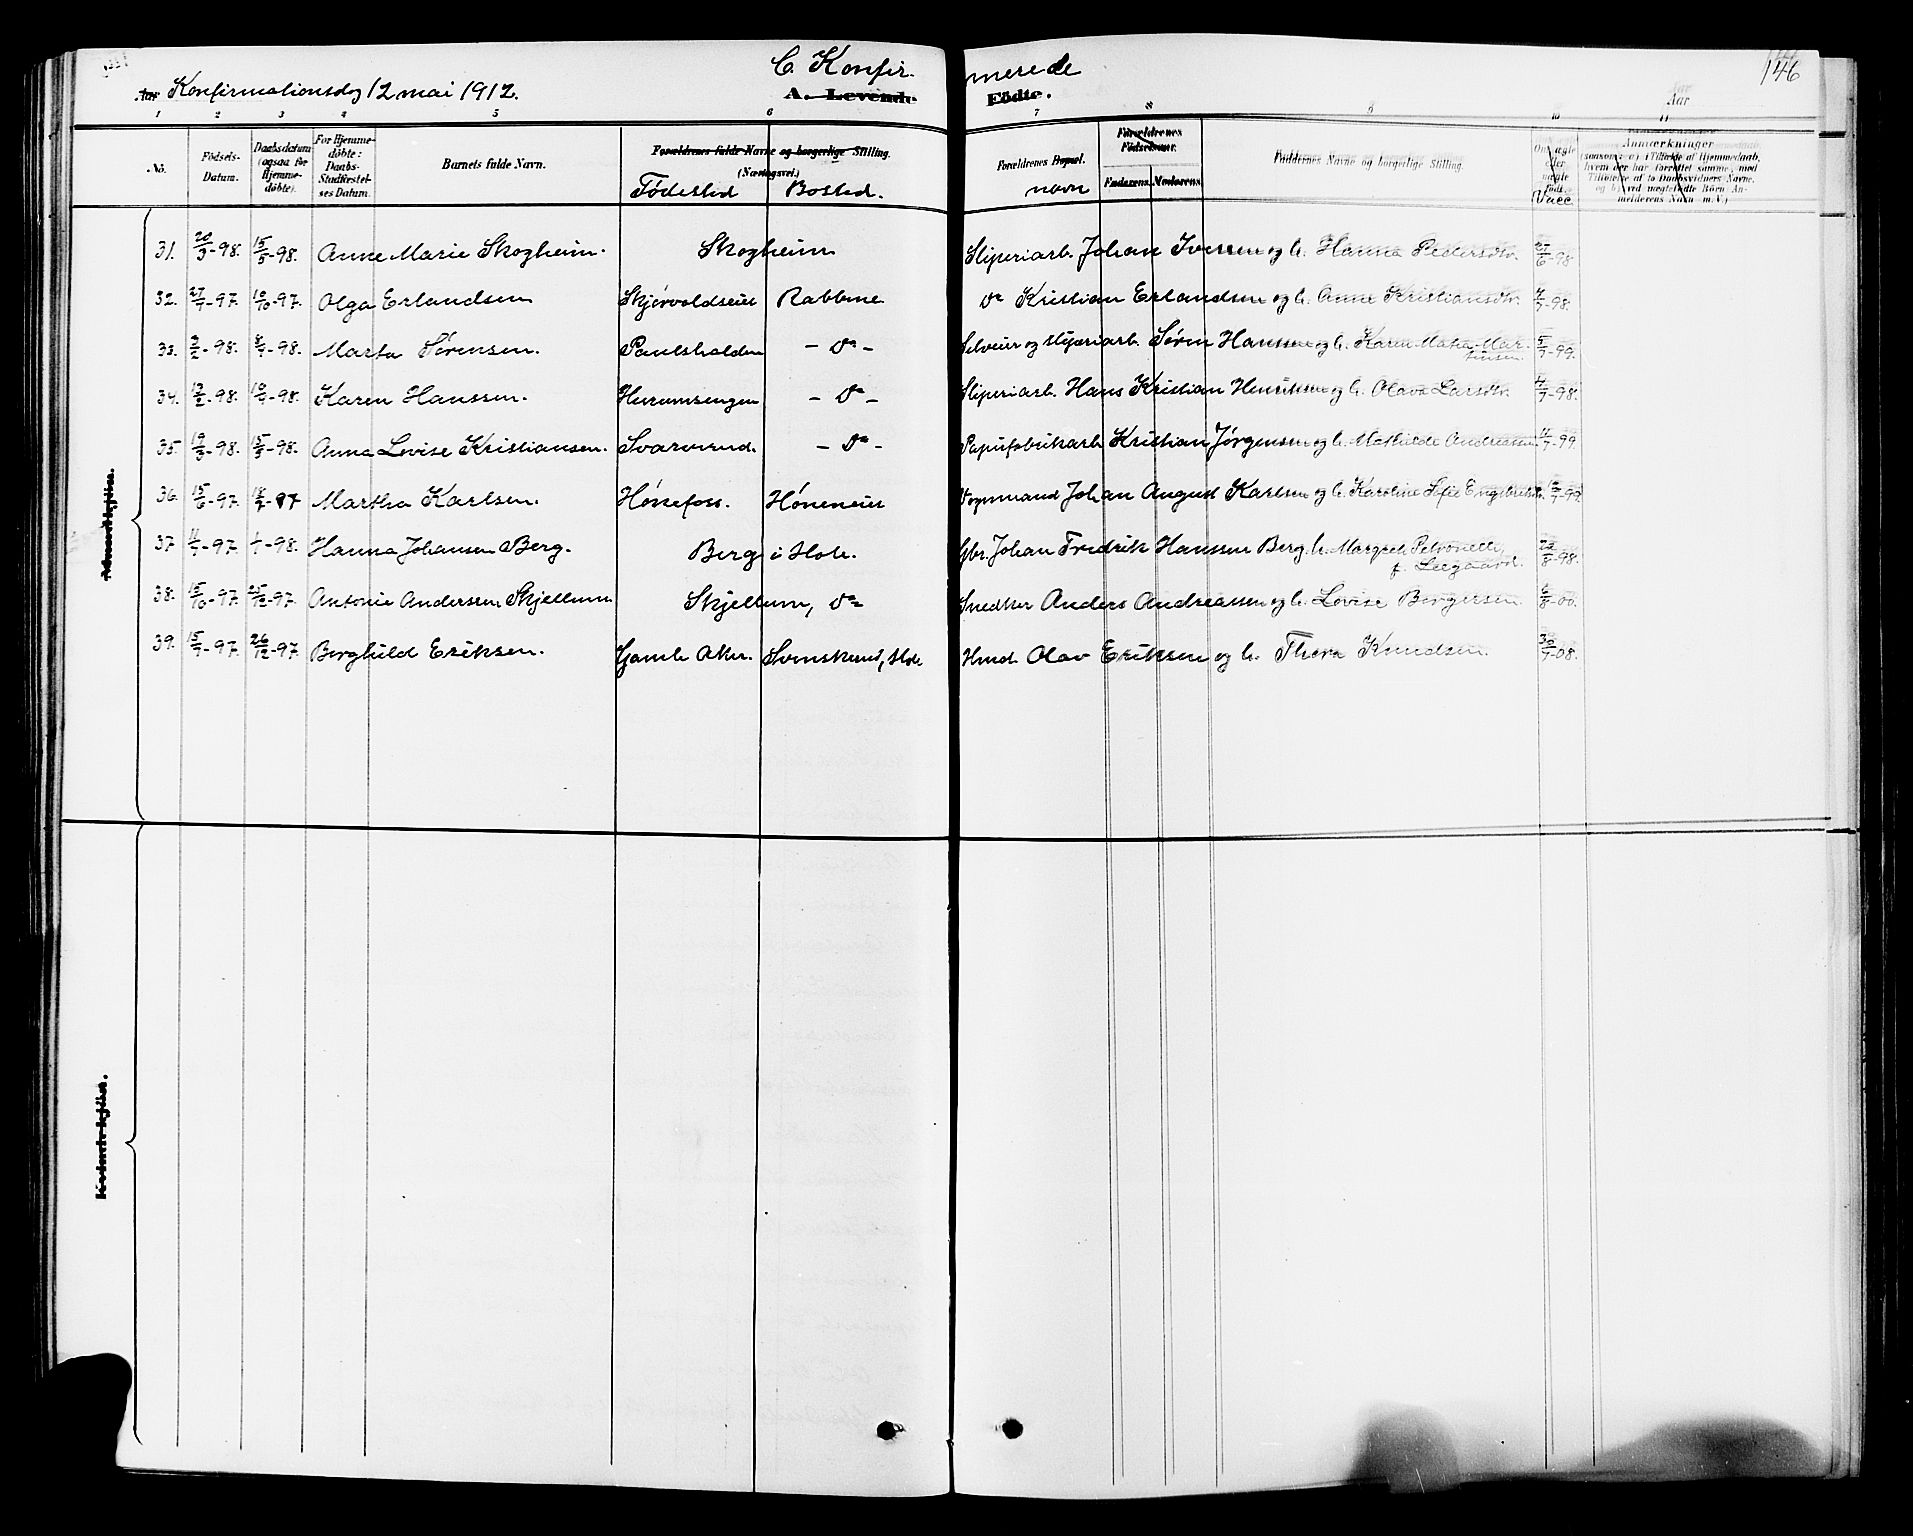 C. Konfir- merede
146
Aar Konfirmationsdag 12 mai 1912.
A. Levende Födte.
Aar
1 2 3 4 5 6 7 8 9 10 11
No.
Födsels-Datum.
Daabsdatum (ogsaa for Hjemme-döbte).
For Hjemme-döbte: Daabs-Stadfæstel-ses Datum.
Barnets fulde Navn.
Forældrenes fulde Navne og borgerlige Stilling.
(Næringsvei.)
Fødested Bosted.
Forældrenes Bopæl.
navn
Forældrenes Födselsaar.
Faderens. Moderens.
Faddernes Navne og borgerlige Stilling.
Om ægte eller uægte födt.
Vacc.
Anmærkninger
(saasom: a) i Tilfælde af Hjemmedaab, hvem der har forrettet samme, med Tilförelse af to Daabsvidners Navne, og b) ved uægtefödte Börn Anmelderens Navn m. V.)
31. 20/3-98. 15/5-98. Anne Marie Skogheim. Skogheim Sliperiarb. Johan Iversen og h. Hanna Pedersdtr. 27/6-98
32. 27/7-97. 10/10-97. Olga Erlandsen Skjørvoldseiet Rabbene do Kristian Erlandsen og h. Anne Kristiansdtr. 4/7-98.
33. 3/2-98. 8/4-98. Marta Sørensen. Paulshalden - do - Selveier og sliperiarb. Søren Hanssen og h. Karen Matea Mar-
tinsen. 5/7-99.
34. 13/2-98. 10/4-98. Karen Hanssen. Herumsengen - do - Sliperiarb. Hans Kristian Henriksen og h. Olava Larsdtr. 4/7-98.
35. 19/3-98. 15/5-98. Anna Lovise Kristiansen. Svarverud. - do - Papirfabrikarb. Kristian Jørgensen og h. Mathilde Andreassen 11/7-99.
36. 15/6-97. 18/7-97 Martha Karlsen. Hønefoss. Høneneiet Vognmand Johan August Karlsen og h. Karoline Sofie Engebretsdtr. 12/7-99.
37. 11/7-97. 1/1-98. Hanna Johansen Berg. Berg i Hole. Gbr. Johan Fredrik Hanssen Berg. h. Margrete Petronelle
f. Leegaard. 22/8-98.
38. 15/10-97. 25/12-97. Antonie Andersen Skjellum Skjellum, do Snedker Anders Andreassen og h. Lovise Børgersen. 6/8-00.
39. 15/7-97. 26/12-97. Borghild Eriksen. Gamle Aker. Svensrud, Hole Hmd. Olav Eriksen og h. Thora Knudsen. 30/7-08.
Mandkjön.
Kvindekjön.